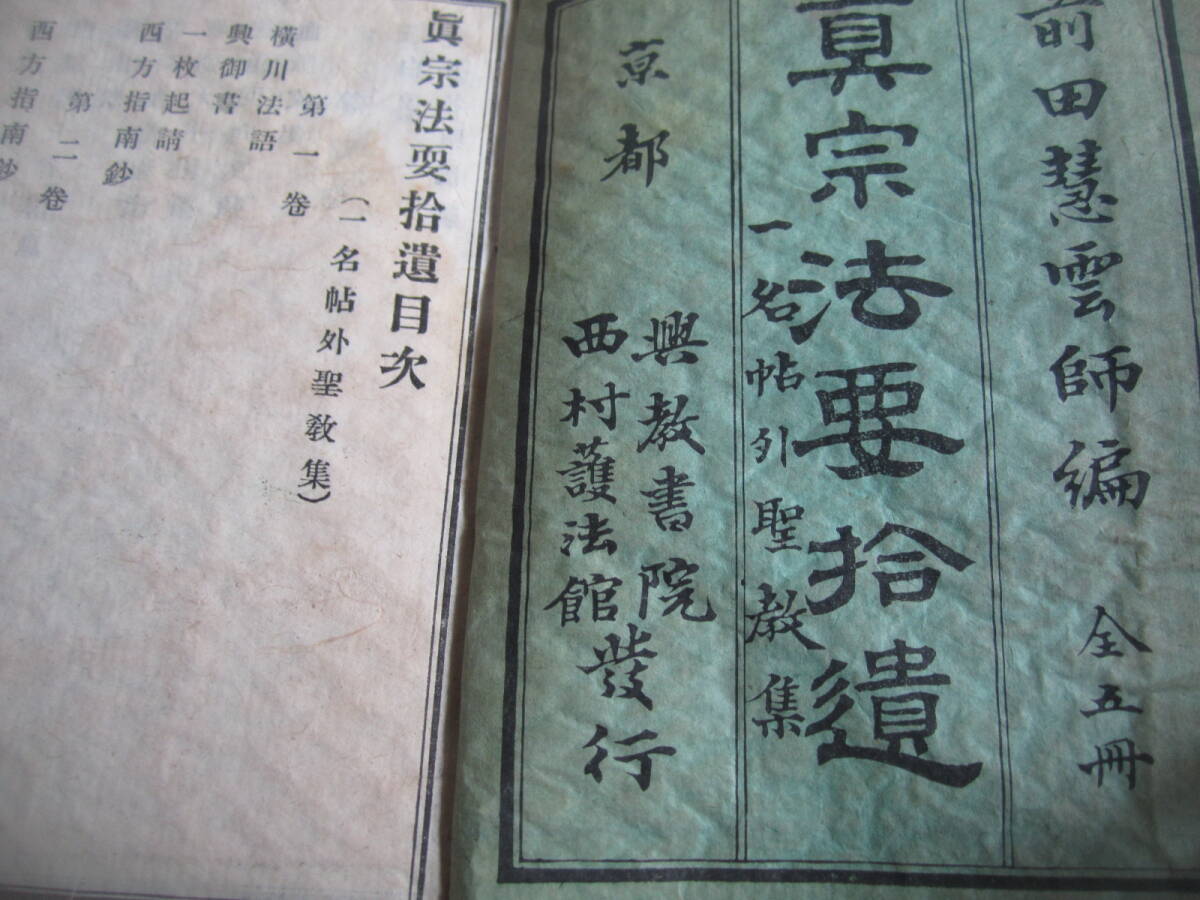 前田慧雲師編 全五冊
真宗法要拾遺
一名帖外聖教集
京都
興教書院
西村護法館
發行
眞宗法要拾遺目次
(一名帖外聖教集)
第一卷
橫川法語
興御書
一枚起請
西方指南鈔
第二卷
西方指南鈔